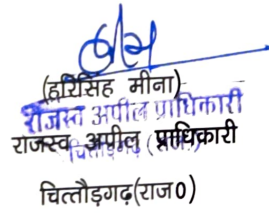 (हरिसिंह मीना)
राजस्व अपील प्राधिकारी
राजस्व अपील प्राधिकारी
चित्तौड़गढ़(राज0)